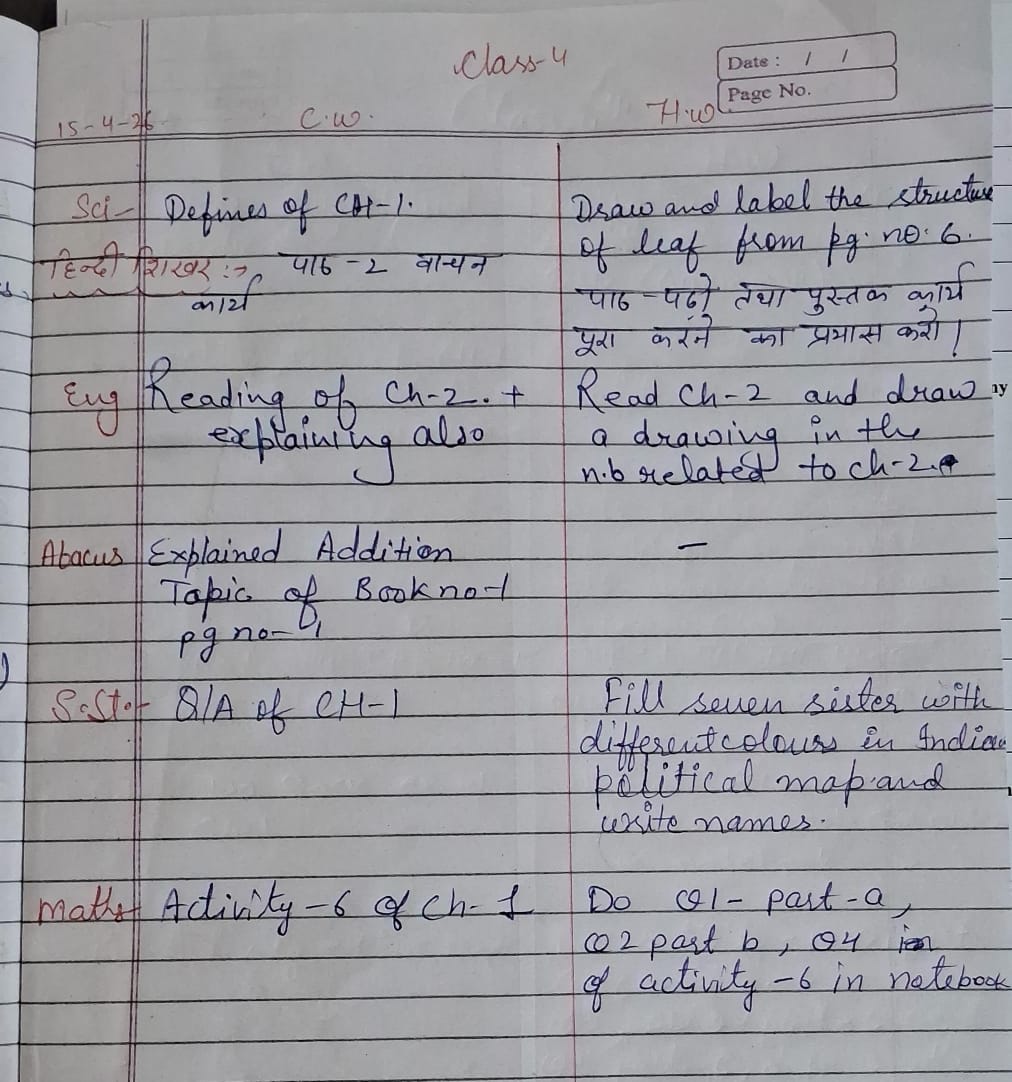 Class-4
Date : / /
Page No.
15-4-26 C.W. H.W
Sci- Defines of CH-1. Draw and label the structure
of leaf from pg. no. 6.
हिन्दी शिखर :→ पाठ -2 वाचन
कार्य पाठ -पढ़ो तथा पुस्तक कार्य
पूरा करने का प्रयास करो।
Eng Reading of Ch-2. + Read Ch-2 and draw
explaining also a drawing in the
n.b related to ch-2.
Abacus Explained Addition -
Topic of Book no-1
pg no-
S.St.- Q/A of CH-1 Fill seven sister with
different colours in Indian
political map and
write names.
Maths- Activity-6 of Ch-1 Do Q1- part-a,
Q2 part b, Q4
of activity-6 in notebook
ay